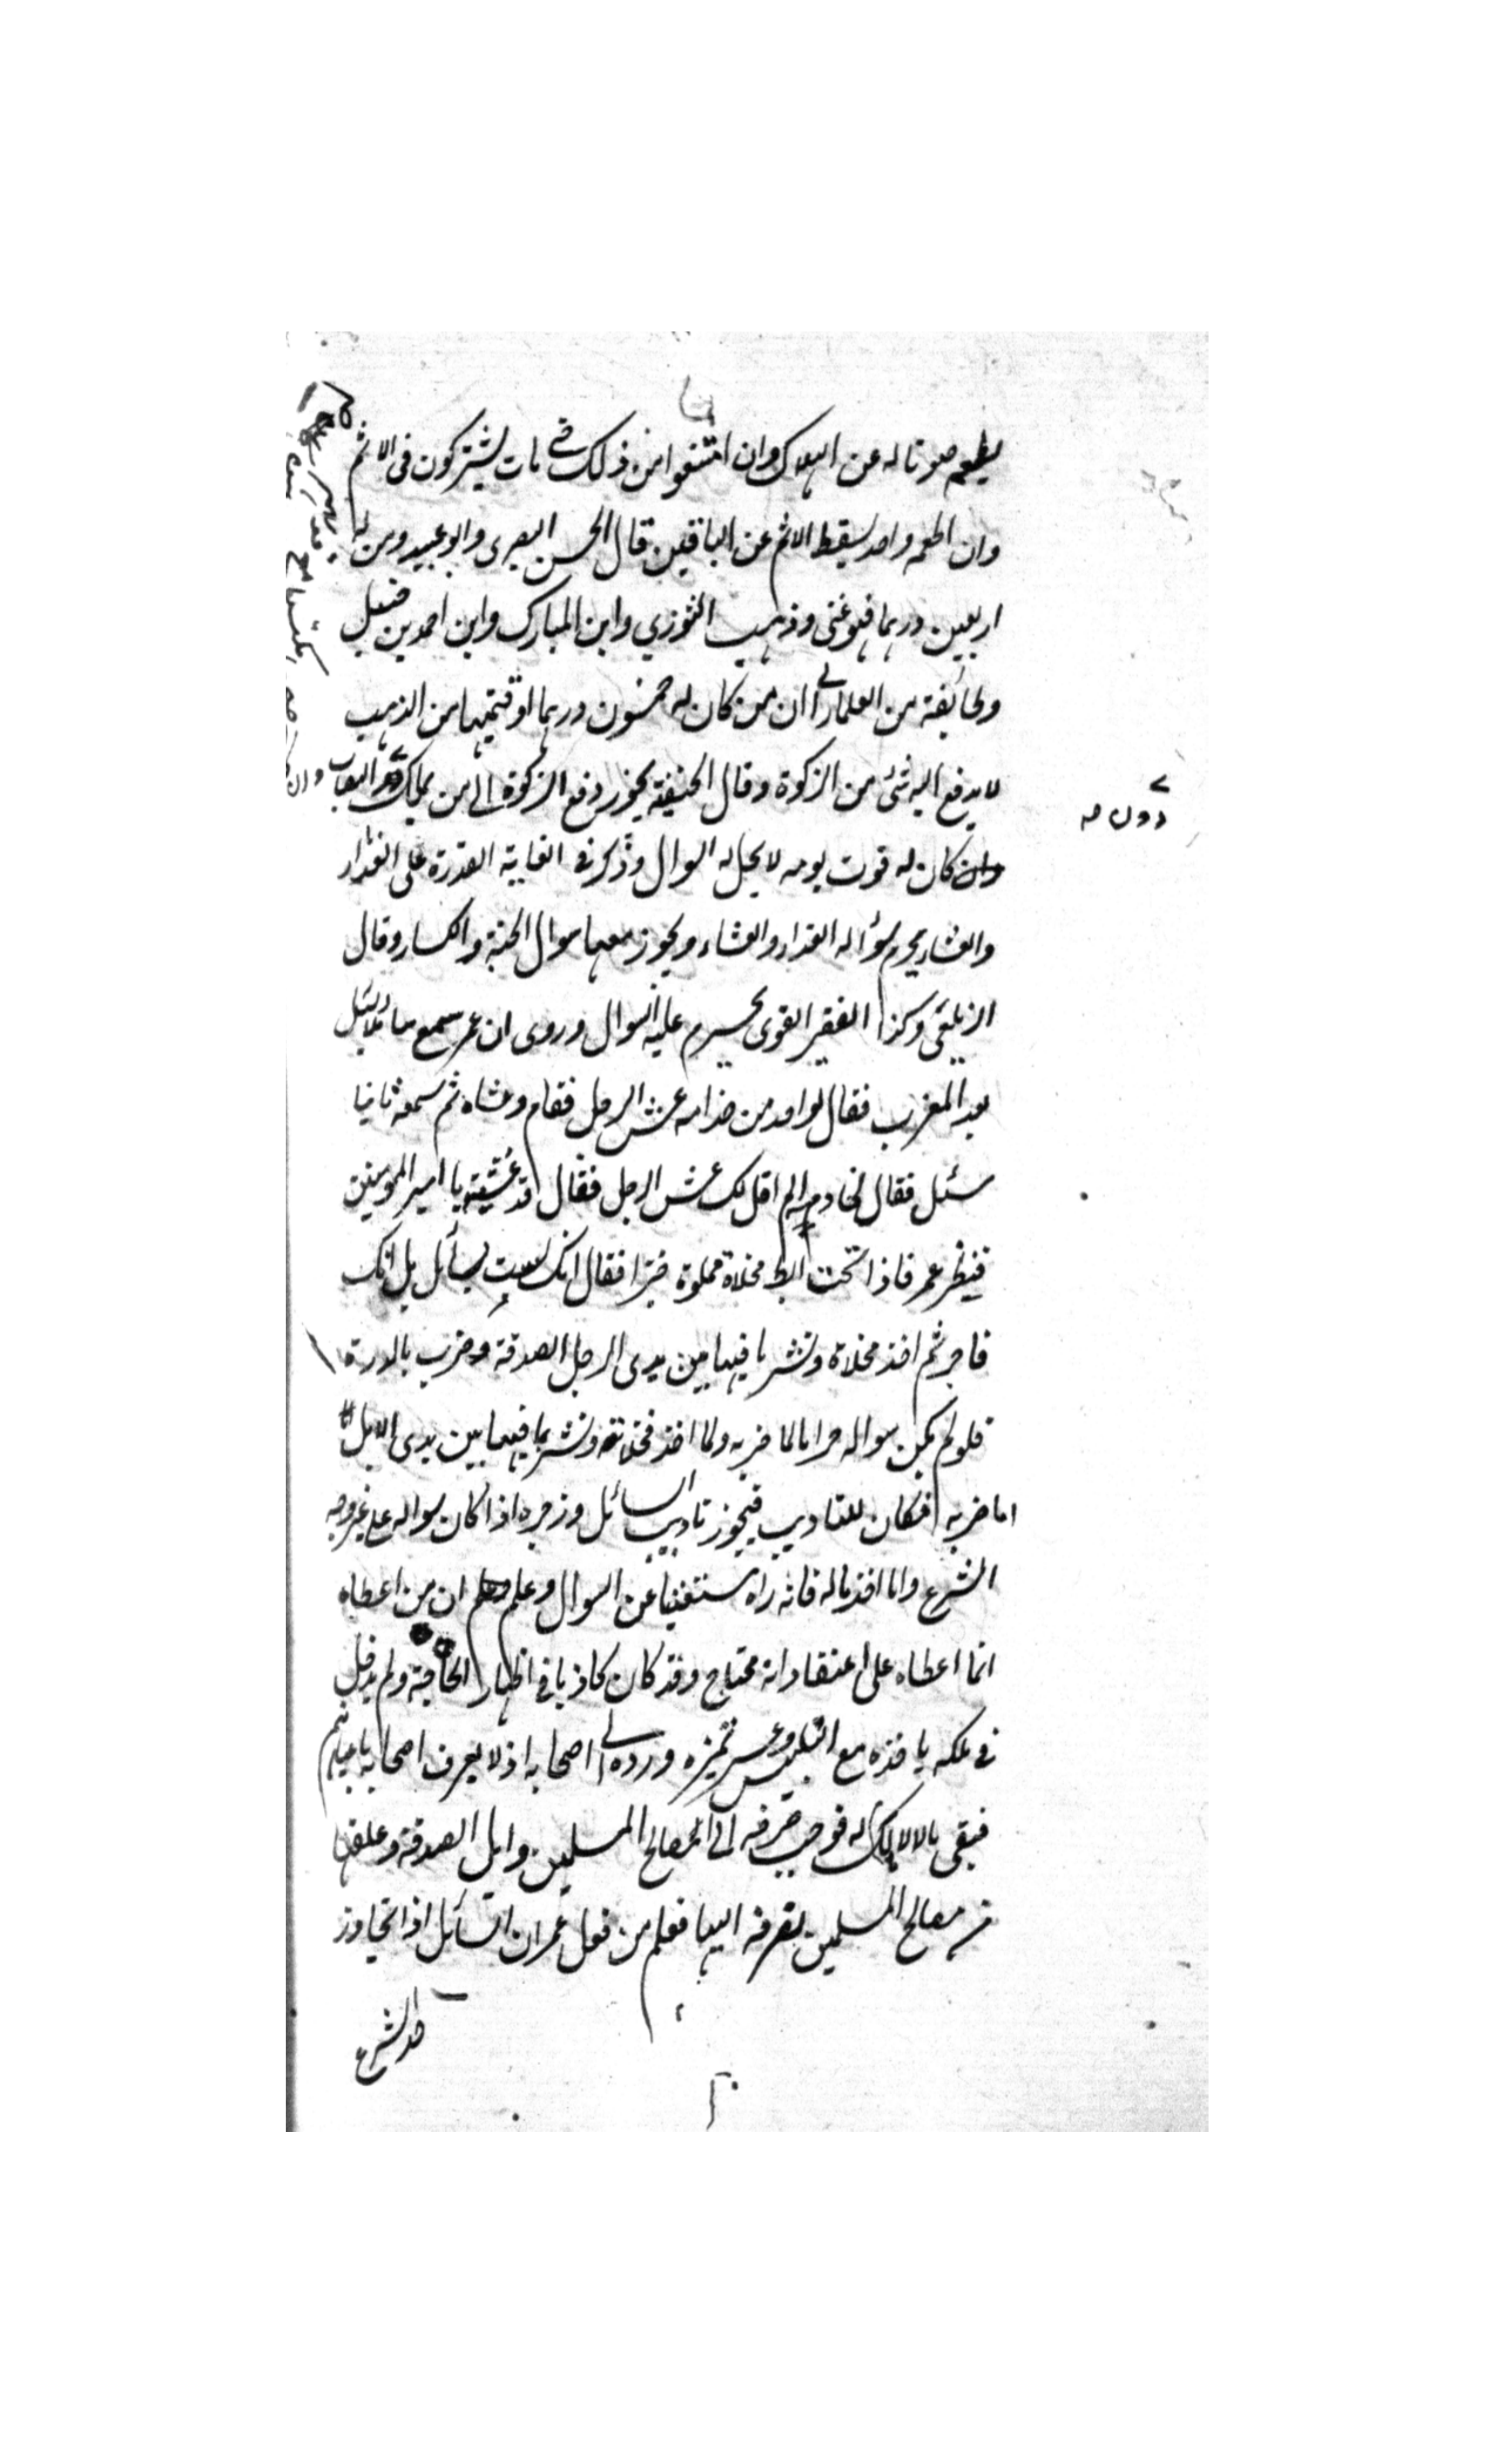 يطعم صونا له عن الهلاك وان امتنعوا من ذلك حتى مات يشتركون فى الاثم
وان اطعمه واحد يسقط الاثم عن الباقين قال الحسن البصرى وابو عبيد ومن له
اربعين درهما فهو غنى وذهب الثوزي وابن المبارك وابن احمد بن حنبل
وطائفة من العلماء الى ان من كان له خمسون درهما او قيمتها من الذهب
لا يدفع اليه شئ من الزكوة وقال الحنيفة يجوز دفع الزكوة الى من يملك دون النصاب
وان كان له قوت يومه لا يحل له السوال وذكر فى الغاية القدرة على الغداء
والعشاء يحرم سؤاله الغداء والعشاء ويجوز معهما سوال الجبة والكساء وقال
الزيلعى وكذا الفقير القوى يحرم عليه السوال وروى ان عمر سمع سائلا يسئل
بعد المغرب فقال لواحد من خدامه عش الرجل فقام وعشاه ثم سمعه ثانيا
يسئل فقال لخادمه الم اقل لك عش الرجل فقال قد عشيته يا امير المومنين
فنظر عمر فاذا تحت ابطه مخلاة مملوة خبزا فقال انك لست بسائل بل انك
فاجر ثم اخذ مخلاة ونثر ما فيها بين يدى الرجل الصدقة وضرب بالدرة
فلو لم يكن سواله حراما لما ضربه ولما اخذ مخلاته ونثر بما فيها بين يدى الابل
اما ضربه فكان للتاديب فيجوز تاديب السائل وزجره اذا كان سواله على غير وجه
الشرع واما اخذ ماله فانه راه مستغنيا عن السوال وعلم ان من اعطاه
انما اعطاه على اعتقاد انه محتاج وقد كان كاذبا فى اظهار الحاجة ولم يدخل
فى ملكه ياخذه مع التلبيس وعسر تميزه ورده الى اصحابه اذ لا يعرف اصحابه باعيانهم
فبقى مالا لا مالك له فوجب صرفه الى المصالح المسلمين وابل الصدقة وعلفها
من مصالح المسلمين يصرفه اليها فعلم من فعل عمر ان السائل اذا تجاوز
حد الشرع
دون صح